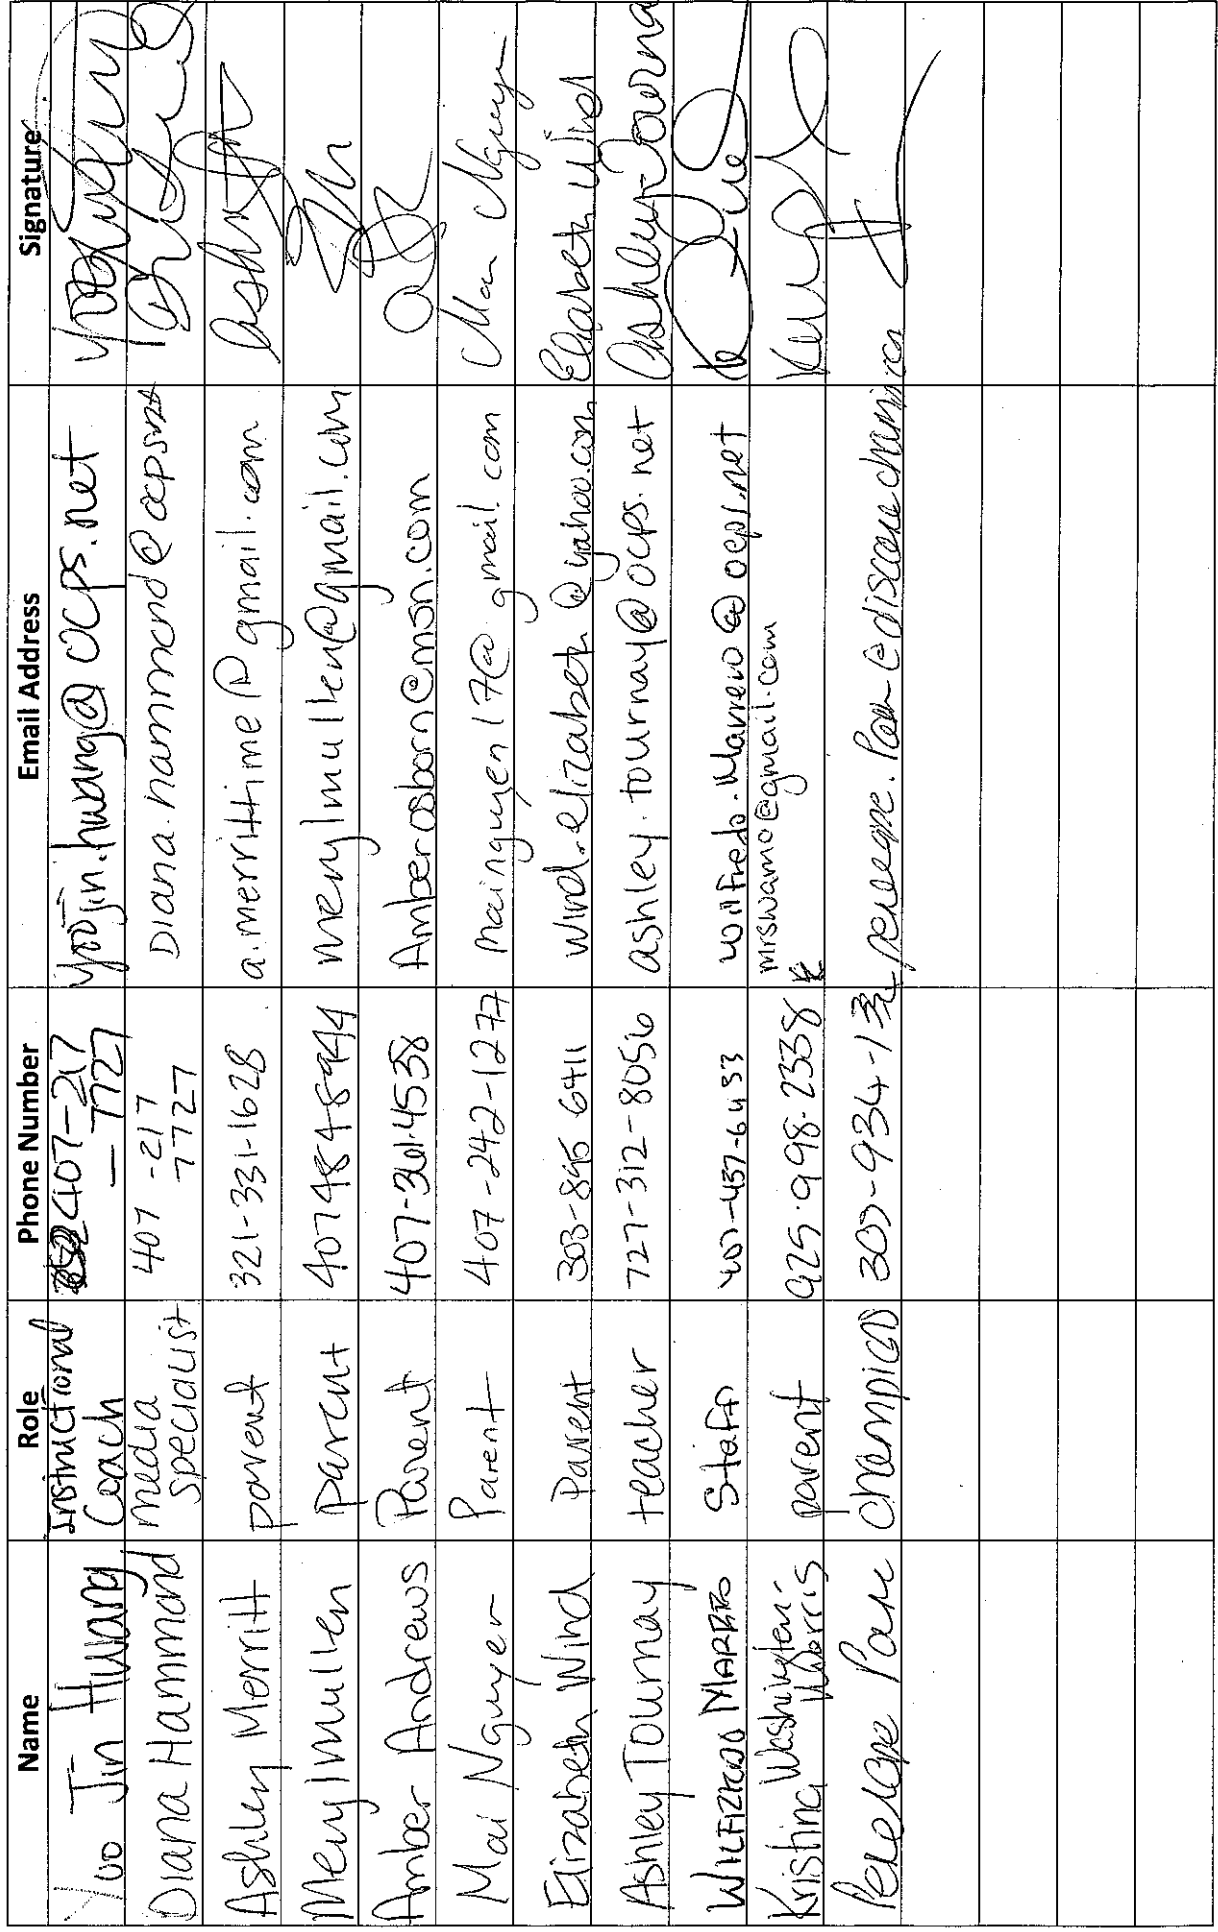 Name Role Phone Number Email Address Signature
Yoo Jin Huang Instructional Coach 407-217-7727 yoojin.huang@ocps.net
Diana Hammond media specialist 407-217-7727 Diana.hammond@ocps.net
Ashley Merritt parent 321-331-1628 a.merrittime@gmail.com
Meryl Mullen parent 4074848944 merylmullen@gmail.com
Amber Andrews Parent 407-361-4538 Amberosborn@msn.com
Mai Nguyen Parent 407-242-1277 mainguyen17@gmail.com Mai Nguyen
Elizabeth Wind Parent 303-895 6411 wind.elizabeth@yahoo.com Elizabeth Wind
Ashley Tournay teacher 727-312-8056 ashley.tournay@ocps.net Ashley Tourna
Wilfredo Marrero Staff 407-437-6433 wilfredo.Marrero@ocps.net
Kristina Washington-Morris parent 925-998-2338 mrswamo@gmail.com
Penelope champion 303-934-13